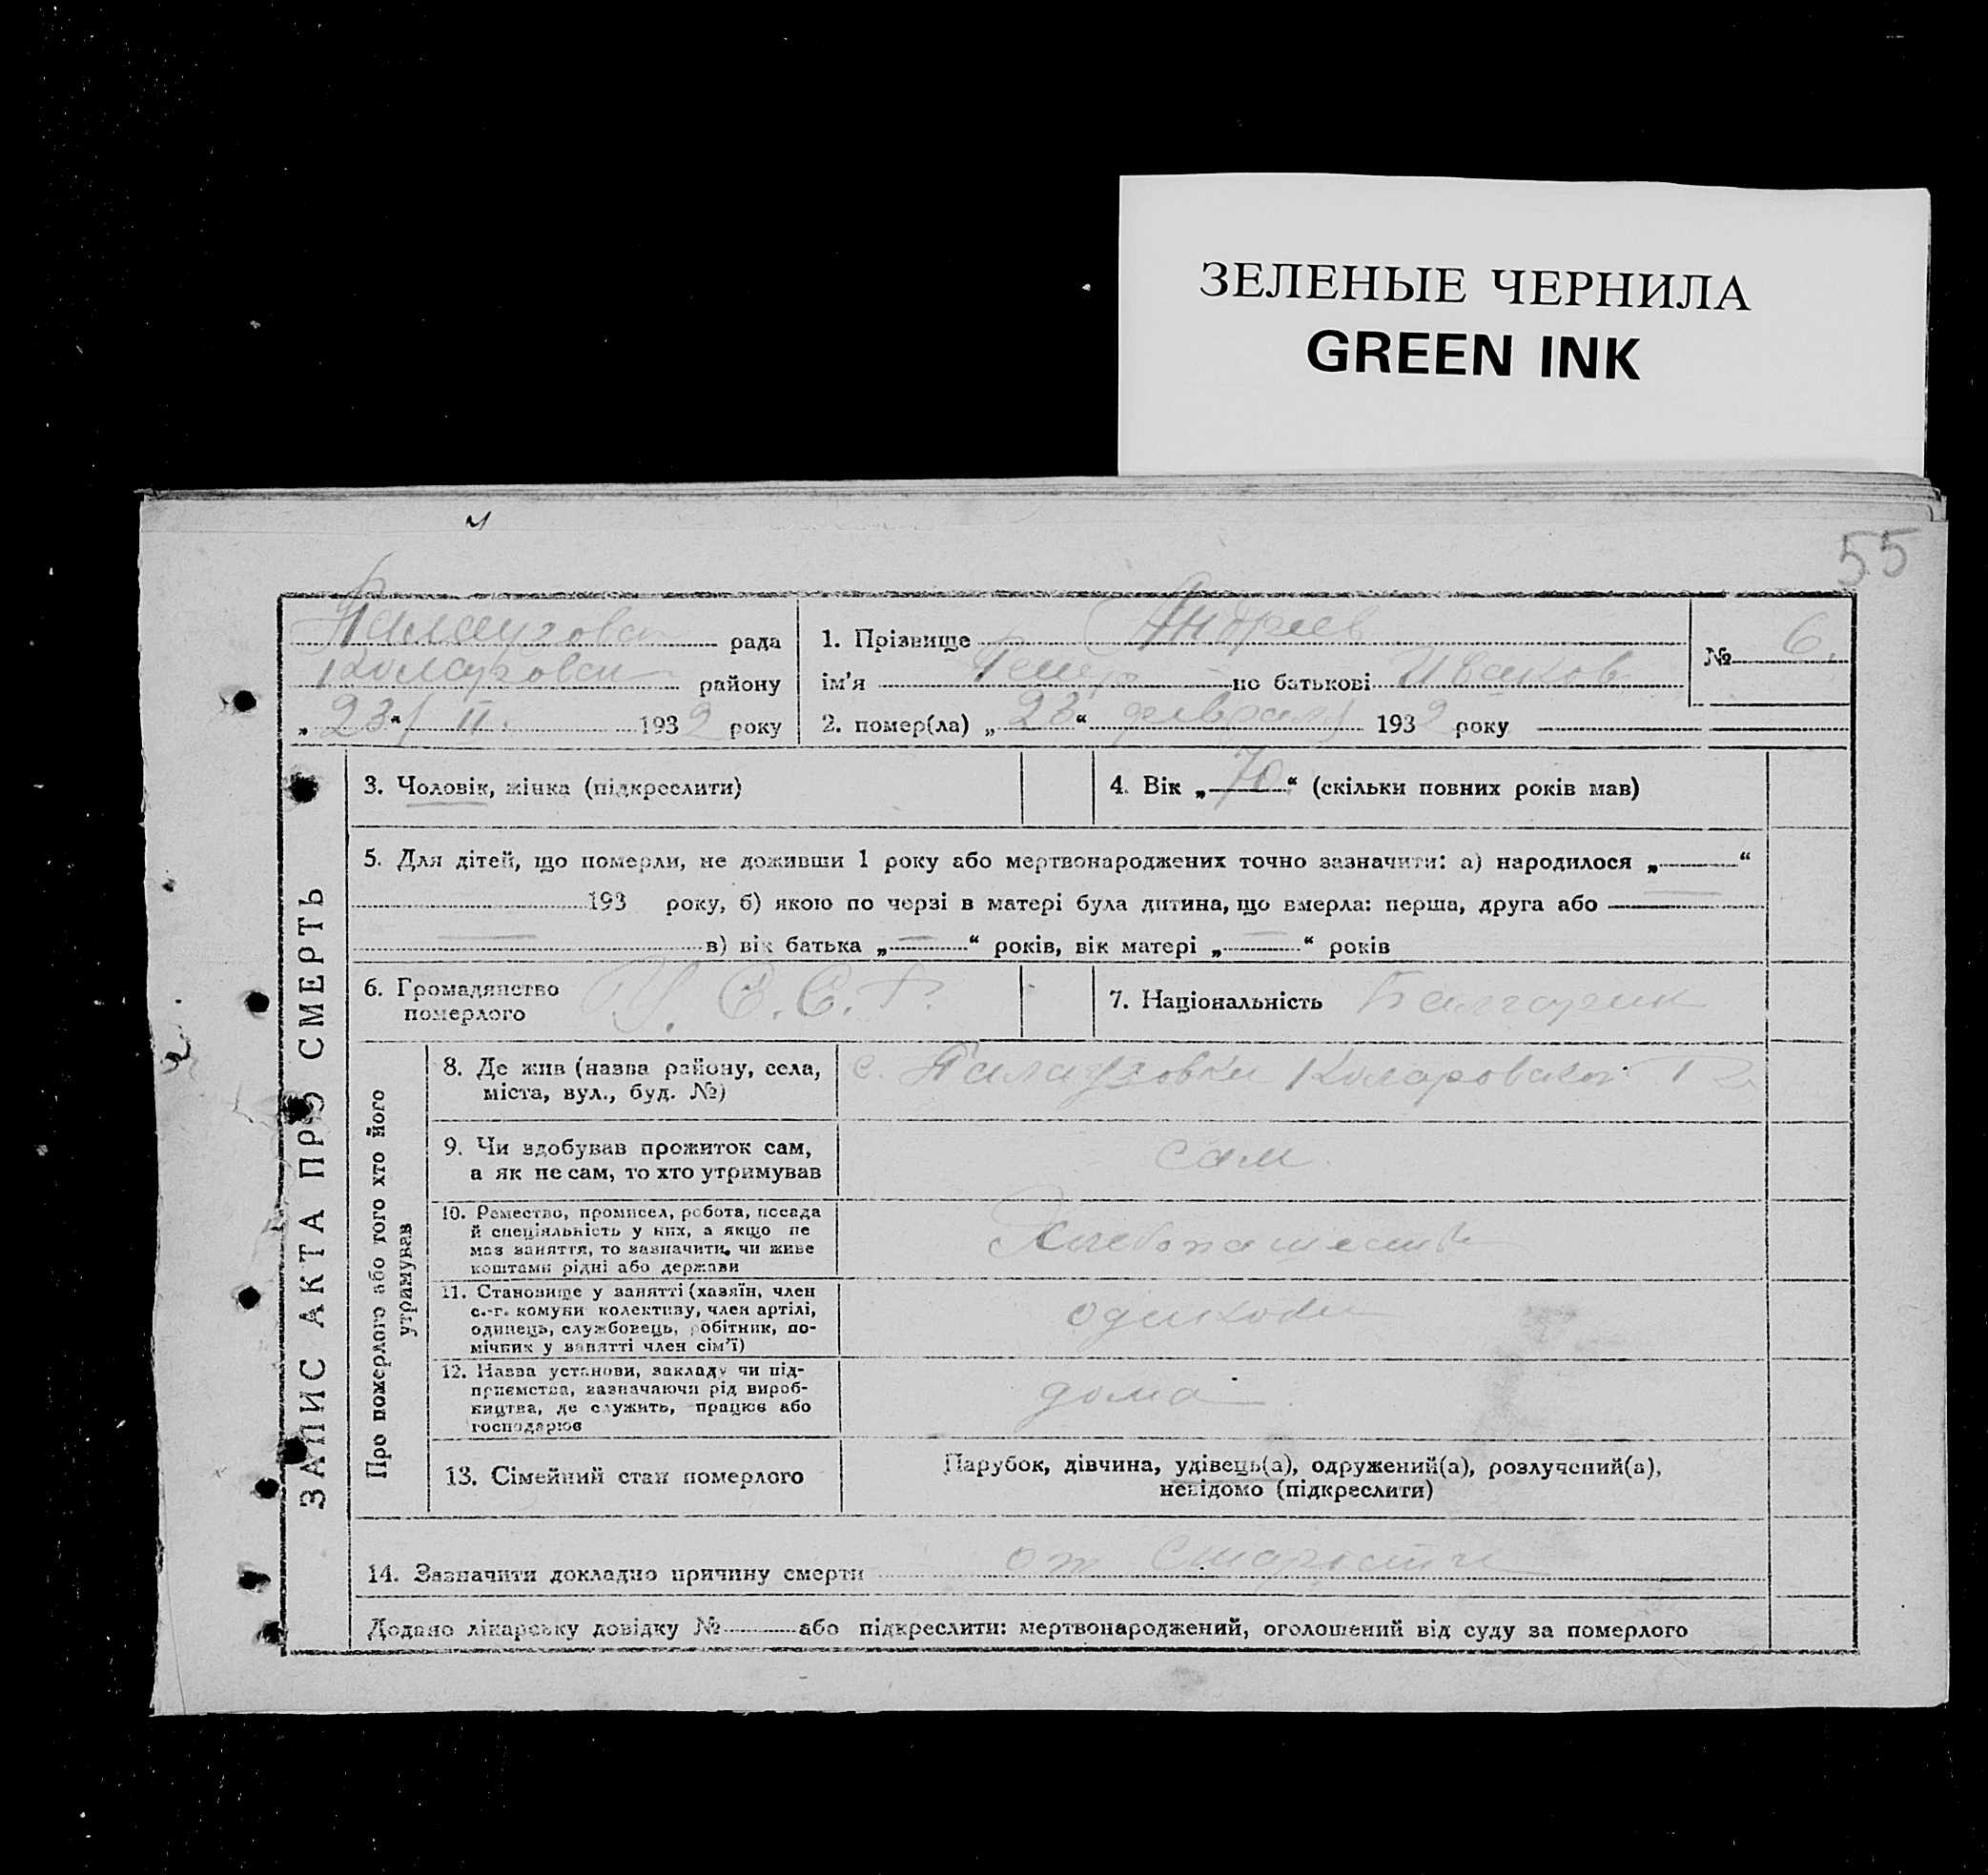 ЗЕЛЕНЫЕ ЧЕРНИЛА
GREEN INK
55
Палаузовск рада
Коларовск району
„23“/ II. 1932 року
1. Прізвище Андреев
ім'я Петр по батькові Иванов
2. помер(ла) „23“ февраля 1932 року
№ 6.
ЗАПИС АКТА ПРО СМЕРТЬ
3. Чоловік, жінка (підкреслити)
4. Вік „70“ (скільки повних років мав)
5. Для дітей, що померли, не доживши 1 року або мертвонароджених точно зазначити: а) народилося „—“
193 року, б) якою по черзі в матері була дитина, що вмерла: перша, друга або —
— в) вік батька „—“ років, вік матері „—“ років
6. Громадянство
померлого У. С. С. Р.
7. Національність Балгарин
Про померлого або того хто його
утримував
8. Де жив (назва району, села,
міста, вул., буд. №)
с. Палаузовки Коларовского Р
9. Чи здобував прожиток сам,
а як не сам, то хто утримував
сам.
10. Ремество, промисел, робота, посада
й спеціяльність у них, а якщо не
має заняття, то зазначити, чи живе
коштами рідні або держави
Хлебопашество
11. Становище у занятті (хазяїн, член
с.-г. комуни колективу, член артілі,
одинець, службовець, робітник, по-
мічник у занятті член сім'ї)
12. Назва установи, закладу чи під-
приємства, зазначаючи рід вироб-
ництва, де служить, працює або
господарює
дома.
13. Сімейний стан померлого
Парубок, дівчина, удівець(а), одружений(а), розлучений(а),
невідомо (підкреслити)
14. Зазначити докладно причину смерти от старости
Додано лікарську довідку № або підкреслити: мертвонароджений, оголошений від суду за померлого